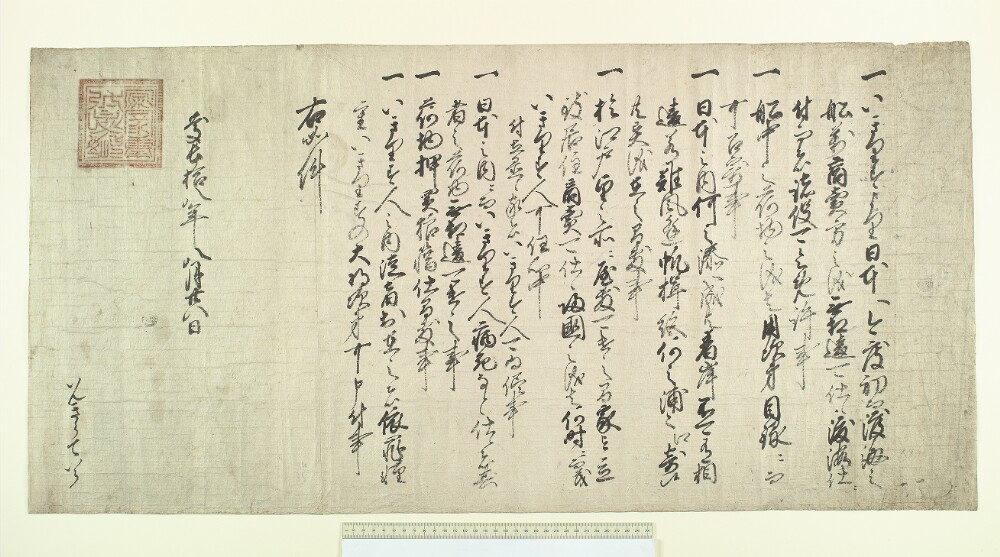 一いきりすより日本へ今度初而渡海之
船萬商賣方之儀無相違可仕候渡海仕
付而ハ諸役可令免許事
一船中之荷物之儀ハ用次第目録ニ而
可召寄事
一日本之内何之湊へ成共着岸不可有相
違若難風逢帆楫絶何之浦々へ寄候
共異儀有之間敷事
一於江戸望之所ニ屋敷可遣之間家を立
致居住商賣可仕候帰國之儀ハ何時ニ而茂
いきりす人可任心中
付立置候家ハいきりす人可為儘事
一日本之内ニ而いきりす人病死なと仕候者其
者之荷物無相違可遣之事
一荷物押買狼藉仕間敷事
一いきりす人之内徒者於有之者依罪軽
重いきりすの大将次第可申付事
右如件
慶長拾八年八月廿八日
いんきらていら